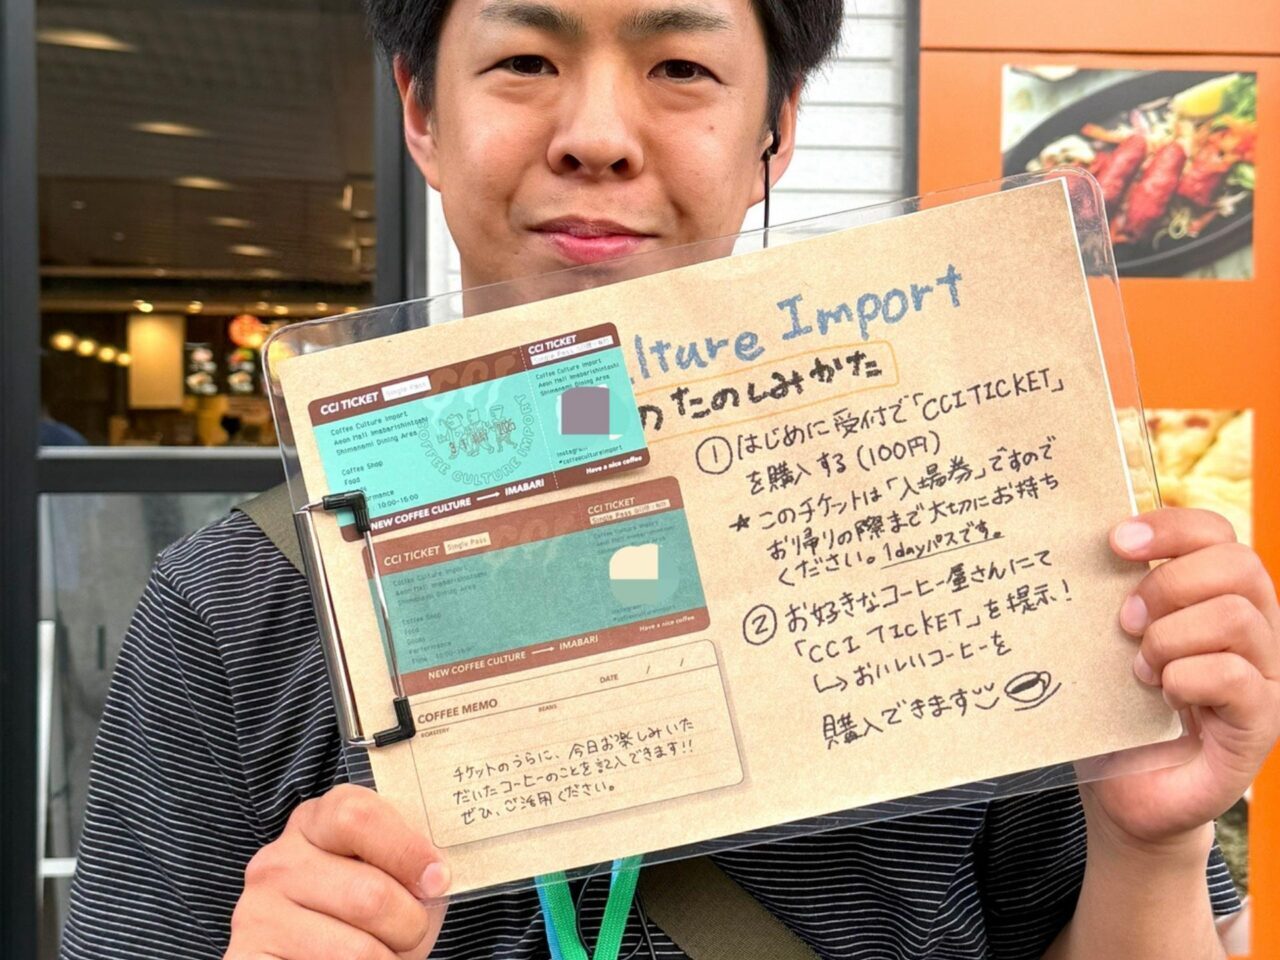 lture Import
たのしみかた
① はじめに受付で「CCI TICKET」
を購入する(100円)
★このチケットは「入場券」ですので
お帰りの際まで大切にお持ち
ください。1dayパスです。
② お好きなコーヒー屋さんにて
「CCI TICKET」を提示!
↳おいしいコーヒーを
購入できます
CCI TICKET Single Pass
Coffee Culture Import
Aeon Mall Imabarishintoshi
Shimanami Dining Area
Coffee Shop
Food
rmance
10:00-15:00
COFFEE CULTURE IMPORT
NEW COFFEE CULTURE → IMABARI
CCI TICKET
Single Pass
Coffee Culture Import
Aeon Mall Imabarishintoshi
Shimanami Dining Area
Instagram
#coffeecultureimport
Have a nice coffee
CCI TICKET Single Pass
Coffee Culture Import
Aeon Mall Imabarishintoshi
Shimanami Dining Area
Coffee Shop
Food
Goods
Performance
Time
NEW COFFEE CULTURE → IMABARI
CCI TICKET
Single Pass
Coffee Culture Import
Shimanami Dining Area
Instagram
#coffeecultureimport
Have a nice coffee
COFFEE MEMO
DATE / /
ROASTERY
BEANS
チケットのうらに、今日お楽しみいた
だいたコーヒーのことを記入できます!!
ぜひ、ご活用ください。